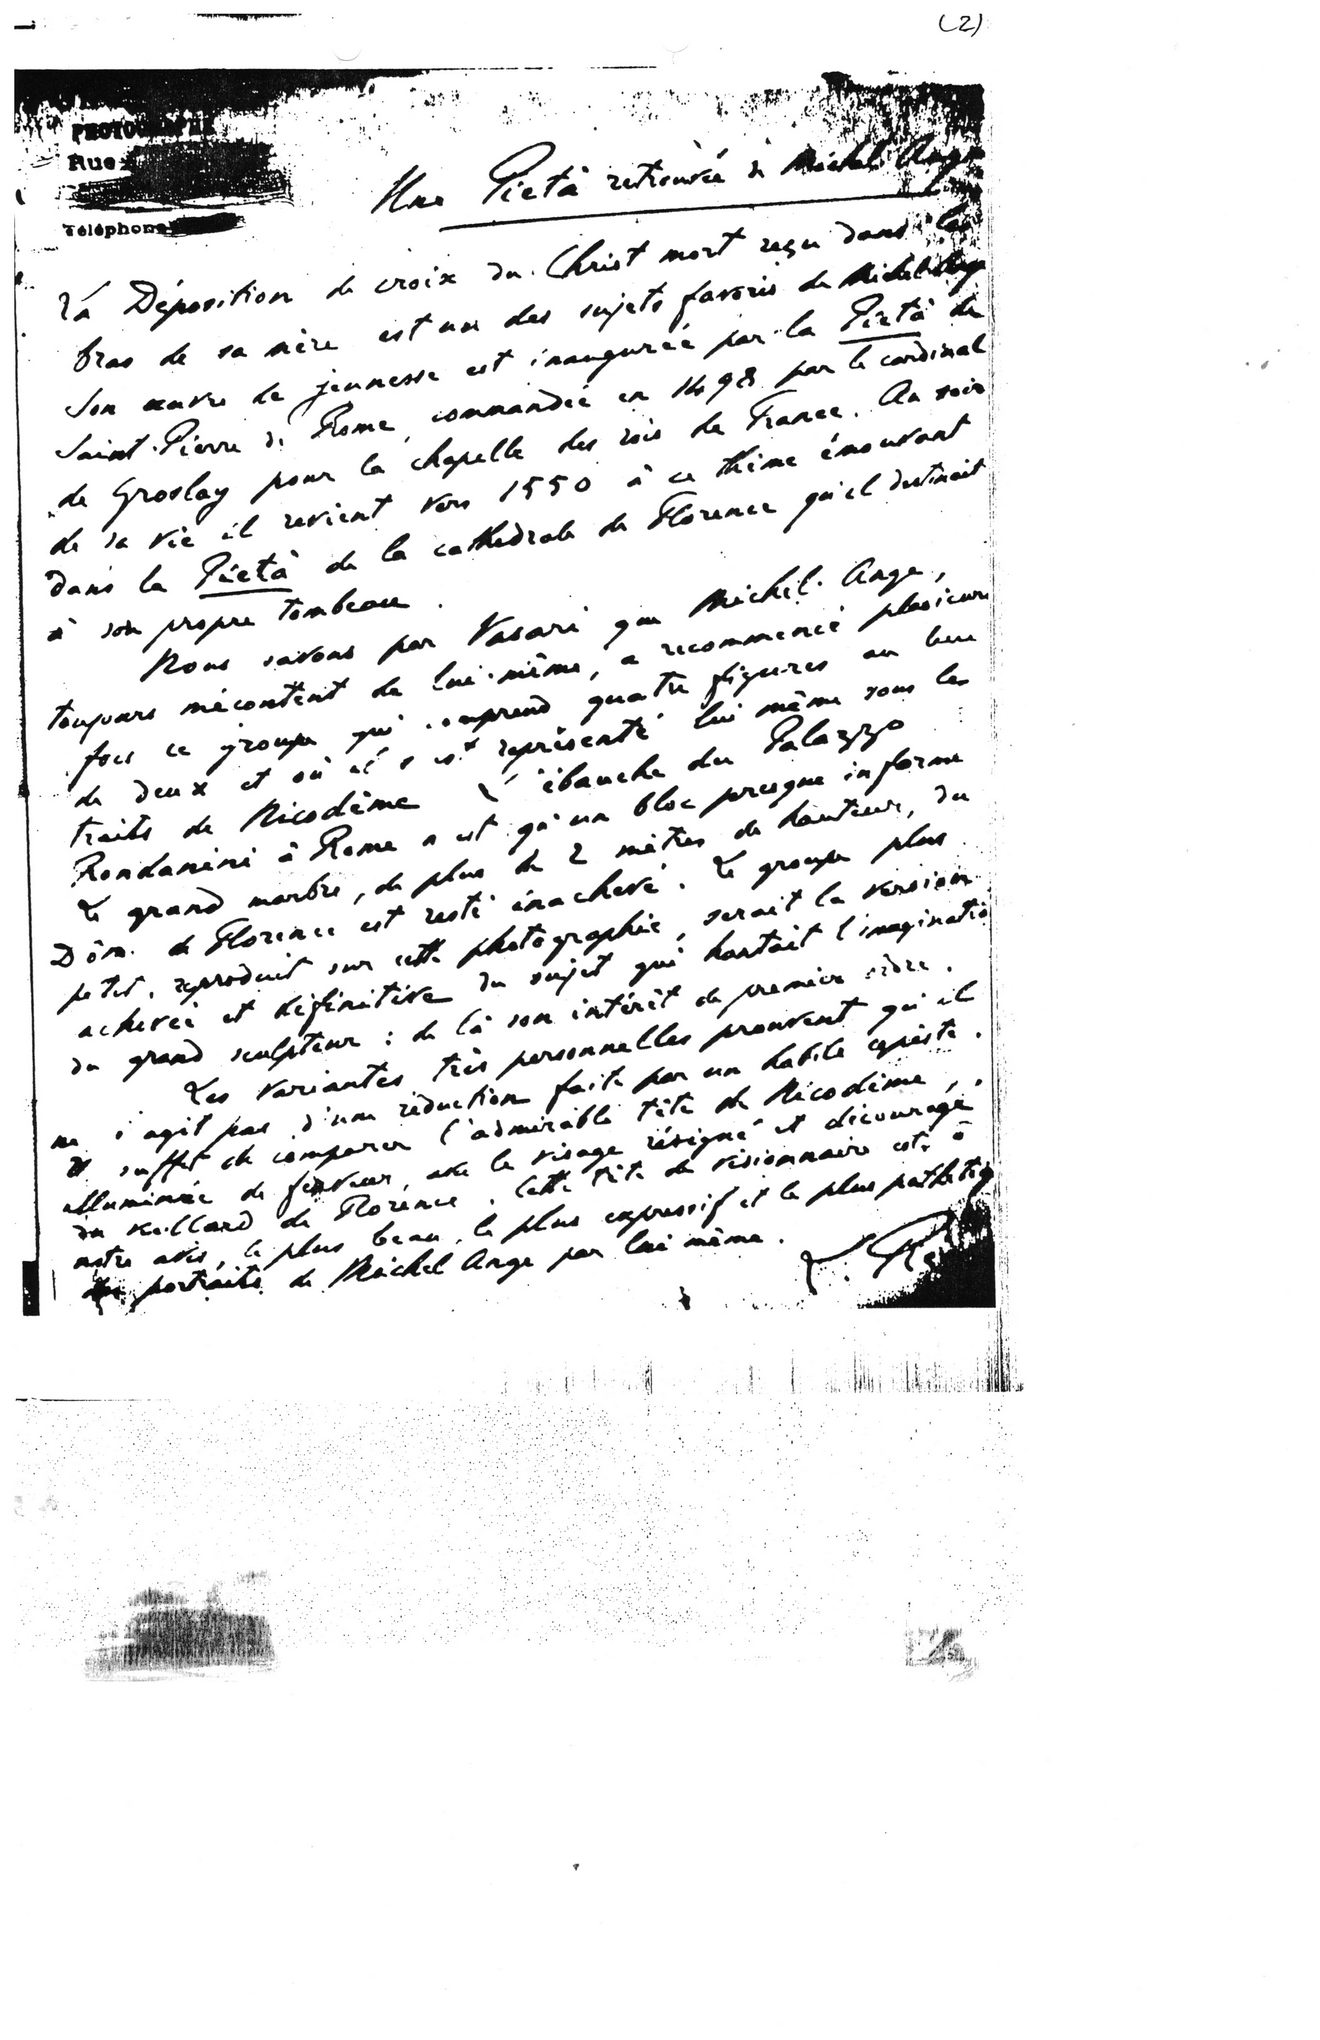 (2)
PHOTOGRAPHE
Rue
Téléphone
Une Pietà retrouvée de Michel Ange
La Déposition de croix du Christ mort reçu dans les
bras de sa mère est un des sujets favoris de Michel Ange
Son œuvre de jeunesse est inaugurée par la Pietà de
Saint-Pierre de Rome, commandée en 1498 par le cardinal
de Groslay pour la chapelle des rois de France. Au soir
de sa vie il revient vers 1550 à ce thème émouvant
dans la Pietà de la cathédrale de Florence qu'il destinait
à son propre tombeau.
Nous savons par Vasari que Michel-Ange,
toujours mécontent de lui-même, a recommencé plusieurs
fois ce groupe qui comprend quatre figures au lieu
de deux et où il s'est représenté lui même sous les
traits de Nicodème. L'ébauche du Palazzo
Rondanini à Rome n'est qu'un bloc presque informe
Le grand marbre, de plus de 2 mètres de hauteur, du
Dôme de Florence est resté inachevé. Le groupe plus
petit, reproduit sur cette photographie, serait la version
achevée et définitive du sujet qui hantait l'imaginatio
du grand sculpteur : de là son intérêt de premier ordre.
Les variantes très personnelles prouvent qu'il
ne s'agit pas d'une réduction faite par un habile copiste.
Il suffit de comparer l'admirable tête de Nicodème,
illuminée de ferveur, avec le visage résigné et découragé
du vieillard de Florence. Cette tête de visionnaire est à
notre avis, le plus beau, le plus expressif et le plus pathétiq
des portraits de Michel Ange par lui même.